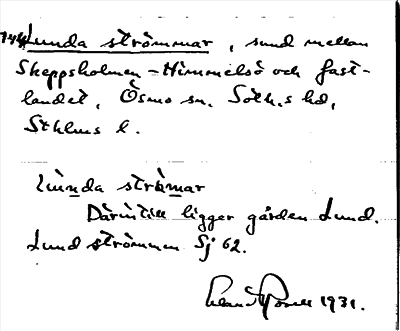 Lunda strömmar, sund mellan
Skeppsholmen - Himmelsö och fast-
landet, Ösmo sn, Soth.s hd,
Sthlms l.
Lùnda strämar
Därintill ligger gården Lund.
Lund strömmen Sj 62.
1931.